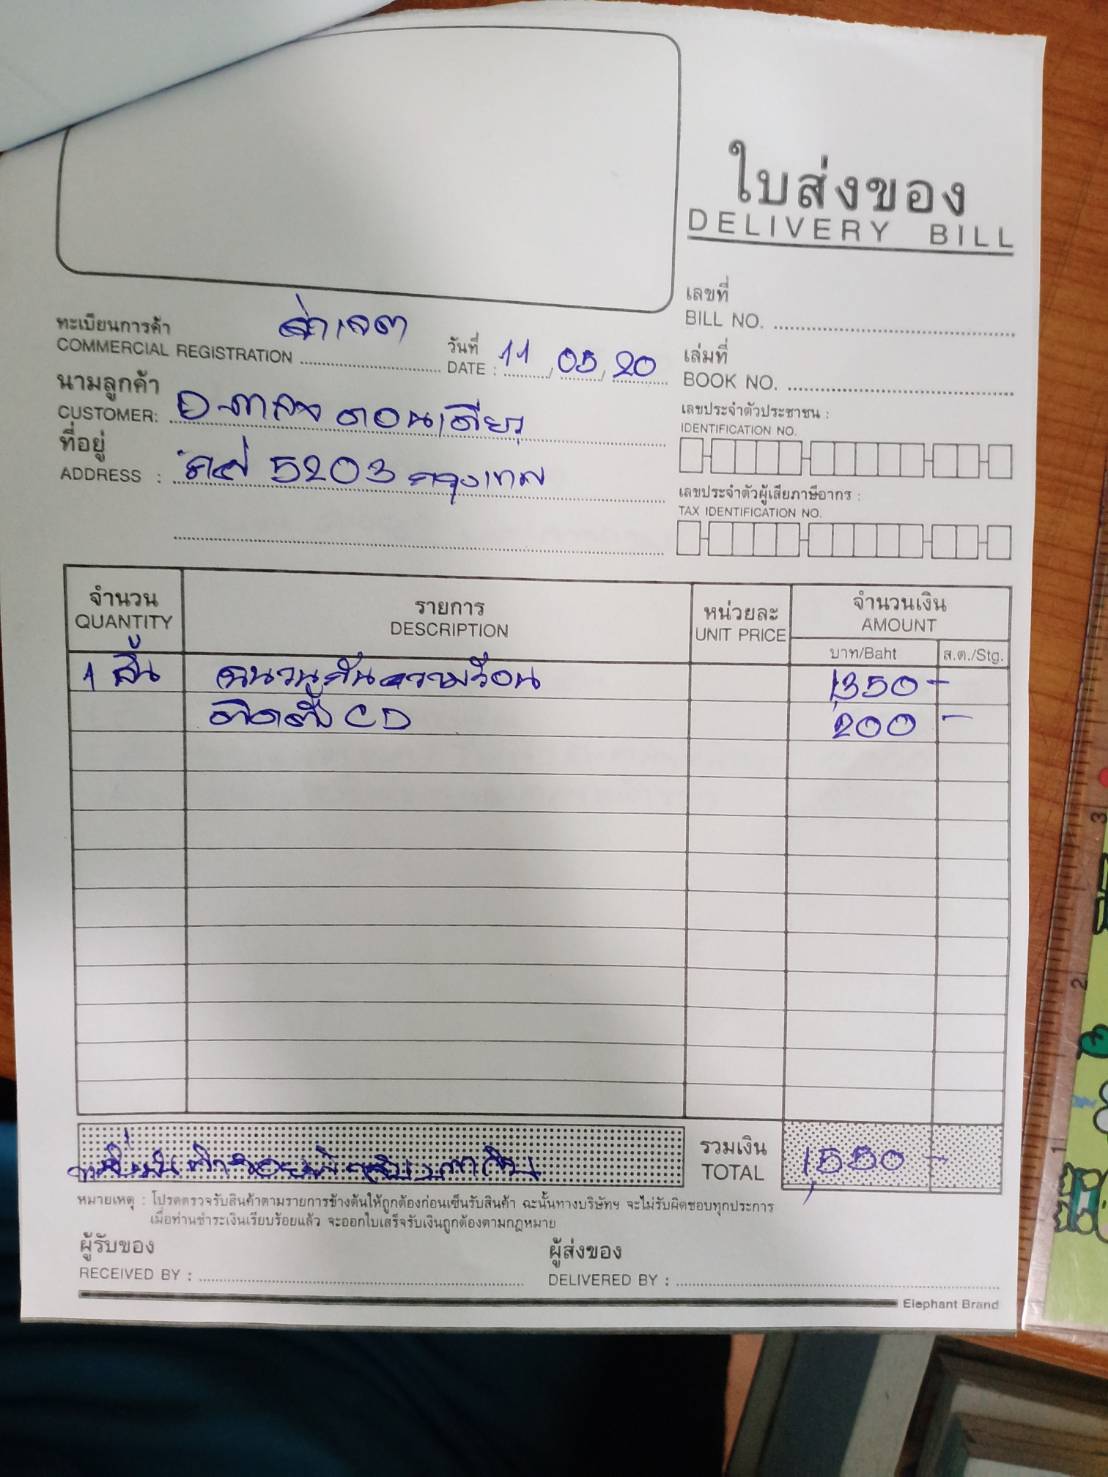 ใบส่งของ
DELIVERY BILL
เลขที่
BILL NO.
ทะเบียนการค้า
COMMERCIAL REGISTRATION
วันที่
DATE : 11, 05, 20
เล่มที่
BOOK NO.
นามลูกค้า
CUSTOMER:
เลขประจำตัวประชาชน :
IDENTIFICATION NO.
ที่อยู่
ADDRESS : 5203 กรุงเทพ
เลขประจำตัวผู้เสียภาษีอากร :
TAX IDENTIFICATION NO.
จำนวน
QUANTITY
รายการ
DESCRIPTION
หน่วยละ
UNIT PRICE
จำนวนเงิน
AMOUNT
บาท/Baht ส.ต./Stg.
1 ฉนวนกันความร้อน 1,350 -
ติดตั้ง CD 200 -
รวมเงิน
TOTAL 1,550 -
หมายเหตุ : โปรดตรวจรับสินค้าตามรายการข้างต้นให้ถูกต้องก่อนเซ็นรับสินค้า ฉะนั้นทางบริษัทฯ จะไม่รับผิดชอบทุกประการ
เมื่อท่านชำระเงินเรียบร้อยแล้ว จะออกใบเสร็จรับเงินถูกต้องตามกฎหมาย
ผู้รับของ
RECEIVED BY :
ผู้ส่งของ
DELIVERED BY :
Elephant Brand
3
2
1